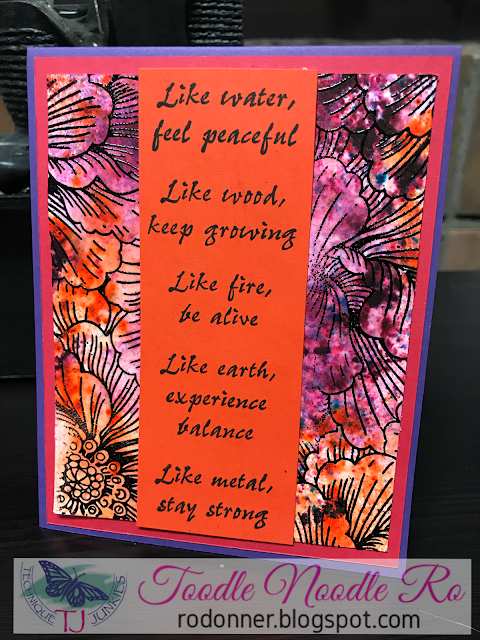 Like water,
feel peaceful
Like wood,
keep growing
Like fire,
be alive
Like earth,
experience
balance
Like metal,
stay strong
TECHNIQUE
TJ
JUNKIES
Toodle Noodle Ro
rodonner.blogspot.com